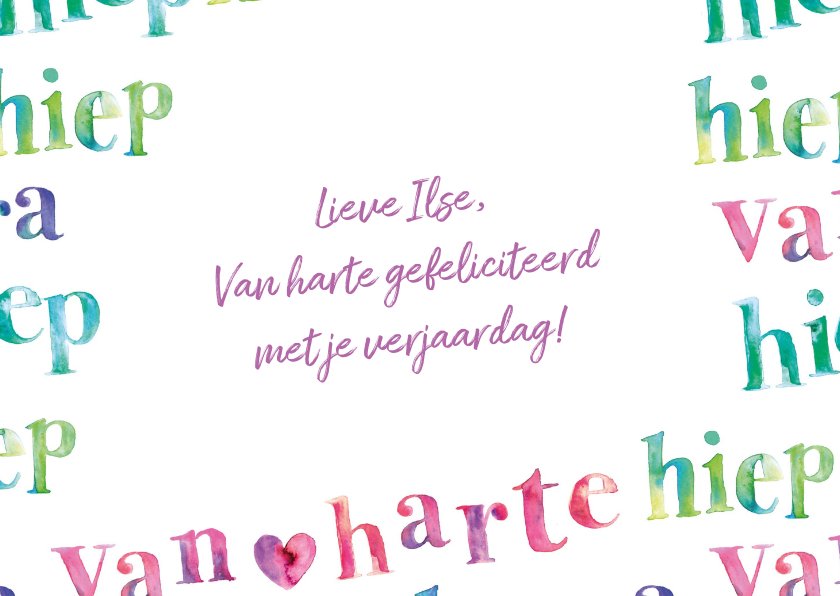 hiep
hiep
hiep
hiep
Lieve Ilse,
van
Van harte gefeliciteerd
met je verjaardag!
hiep
van harte
van